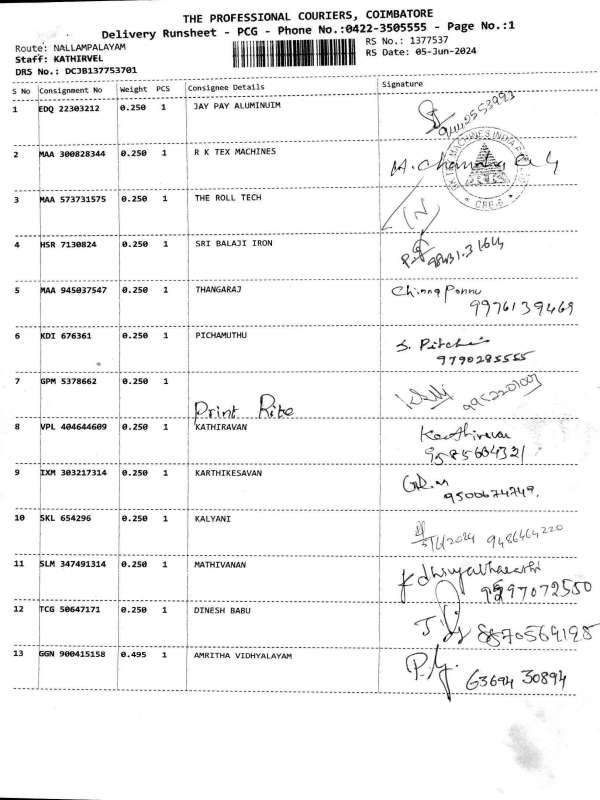 THE PROFESSIONAL COURIERS, COIMBATORE
Delivery Runsheet - PCG - Phone No.:0422-3505555 - Page No.:1
Route: NALLAMPALAYAM
RS No.: 1377537
Staff: KATHIRVEL
RS Date: 05-Jun-2024
DRS No.: DCJB137753701
S No Consignment No Weight PCS Consignee Details Signature
1 EDQ 22303212 0.250 1 JAY PAY ALUMINUIM
2 MAA 300828344 0.250 1 R K TEX MACHINES
3 MAA 573731575 0.250 1 THE ROLL TECH
4 HSR 7130824 0.250 1 SRI BALAJI IRON
5 MAA 945037547 0.250 1 THANGARAJ Chinna Ponnu
9976139469
6 KDI 676361 0.250 1 PICHAMUTHU S. Pitchai
9790285555
7 GPM 5378662 0.250 1
Print Rite
8 VPL 404644609 0.250 1 KATHIRAVAN Kathiravan
9585604321
9 IXM 303217314 0.250 1 KARTHIKESAVAN
9500674749.
10 SKL 654296 0.250 1 KALYANI 5/6/2024 9486464220
11 SLM 347491314 0.250 1 MATHIVANAN
12 TCG 50647171 0.250 1 DINESH BABU 8870569198
13 GGN 900415158 0.495 1 AMRITHA VIDHYALAYAM
63694 30894